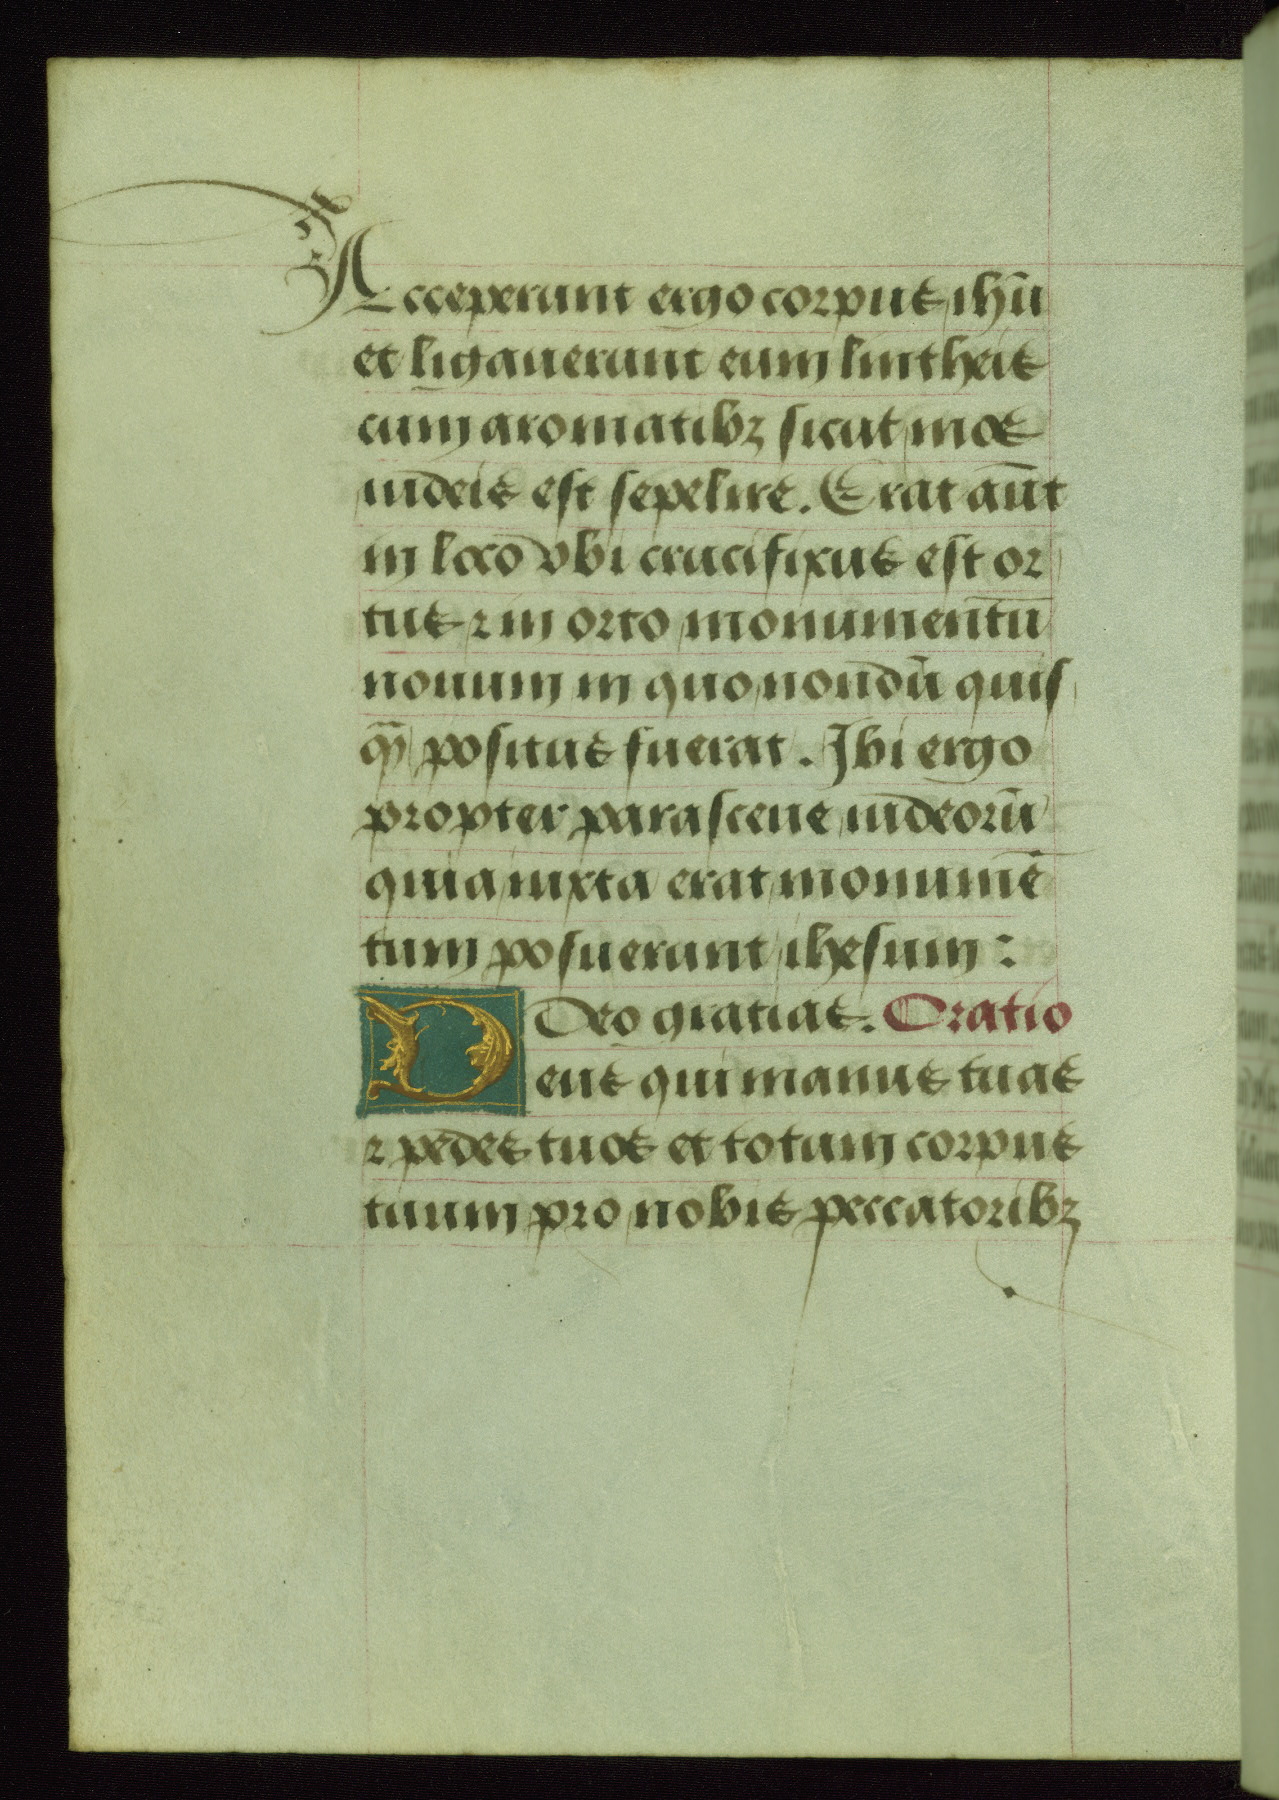 Acceperunt ergo corpus ihū
et ligauerunt eum lintheis
cum aromatibꝫ sicut mos
iudeis est sepelire. Erat aūt
in loco vbi crucifixus est or
tus ⁊ in orto monumentū
nouum in quo nondū quis
q̄ꝫ positus fuerat. Ibi ergo
propter parasceue iudeorū
quia iuxta erat monumē
tum posuerunt ihesum :
Deo gratias. Oratio
Deus qui manus tuas
⁊ pedes tuos et totum corpus
tuum pro nobis peccatoribꝫ